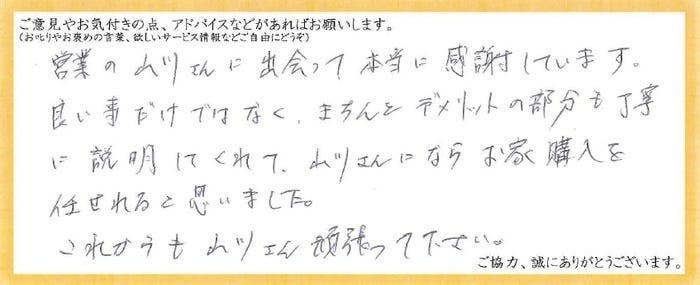 ご意見やお気付きの点、アドバイスなどがあればお願いします。
(お叱りやお褒めの言葉、欲しいサービス情報などご自由にどうぞ)
営業の山ツさんに出会って本当に感謝しています。
良い事だけではなく、きちんとデメリットの部分も丁寧
に説明してくれて、山ツさんになら お家購入を
任せれると思いました。
これからも山ツさん頑張って下さい。
ご協力、誠にありがとうございます。